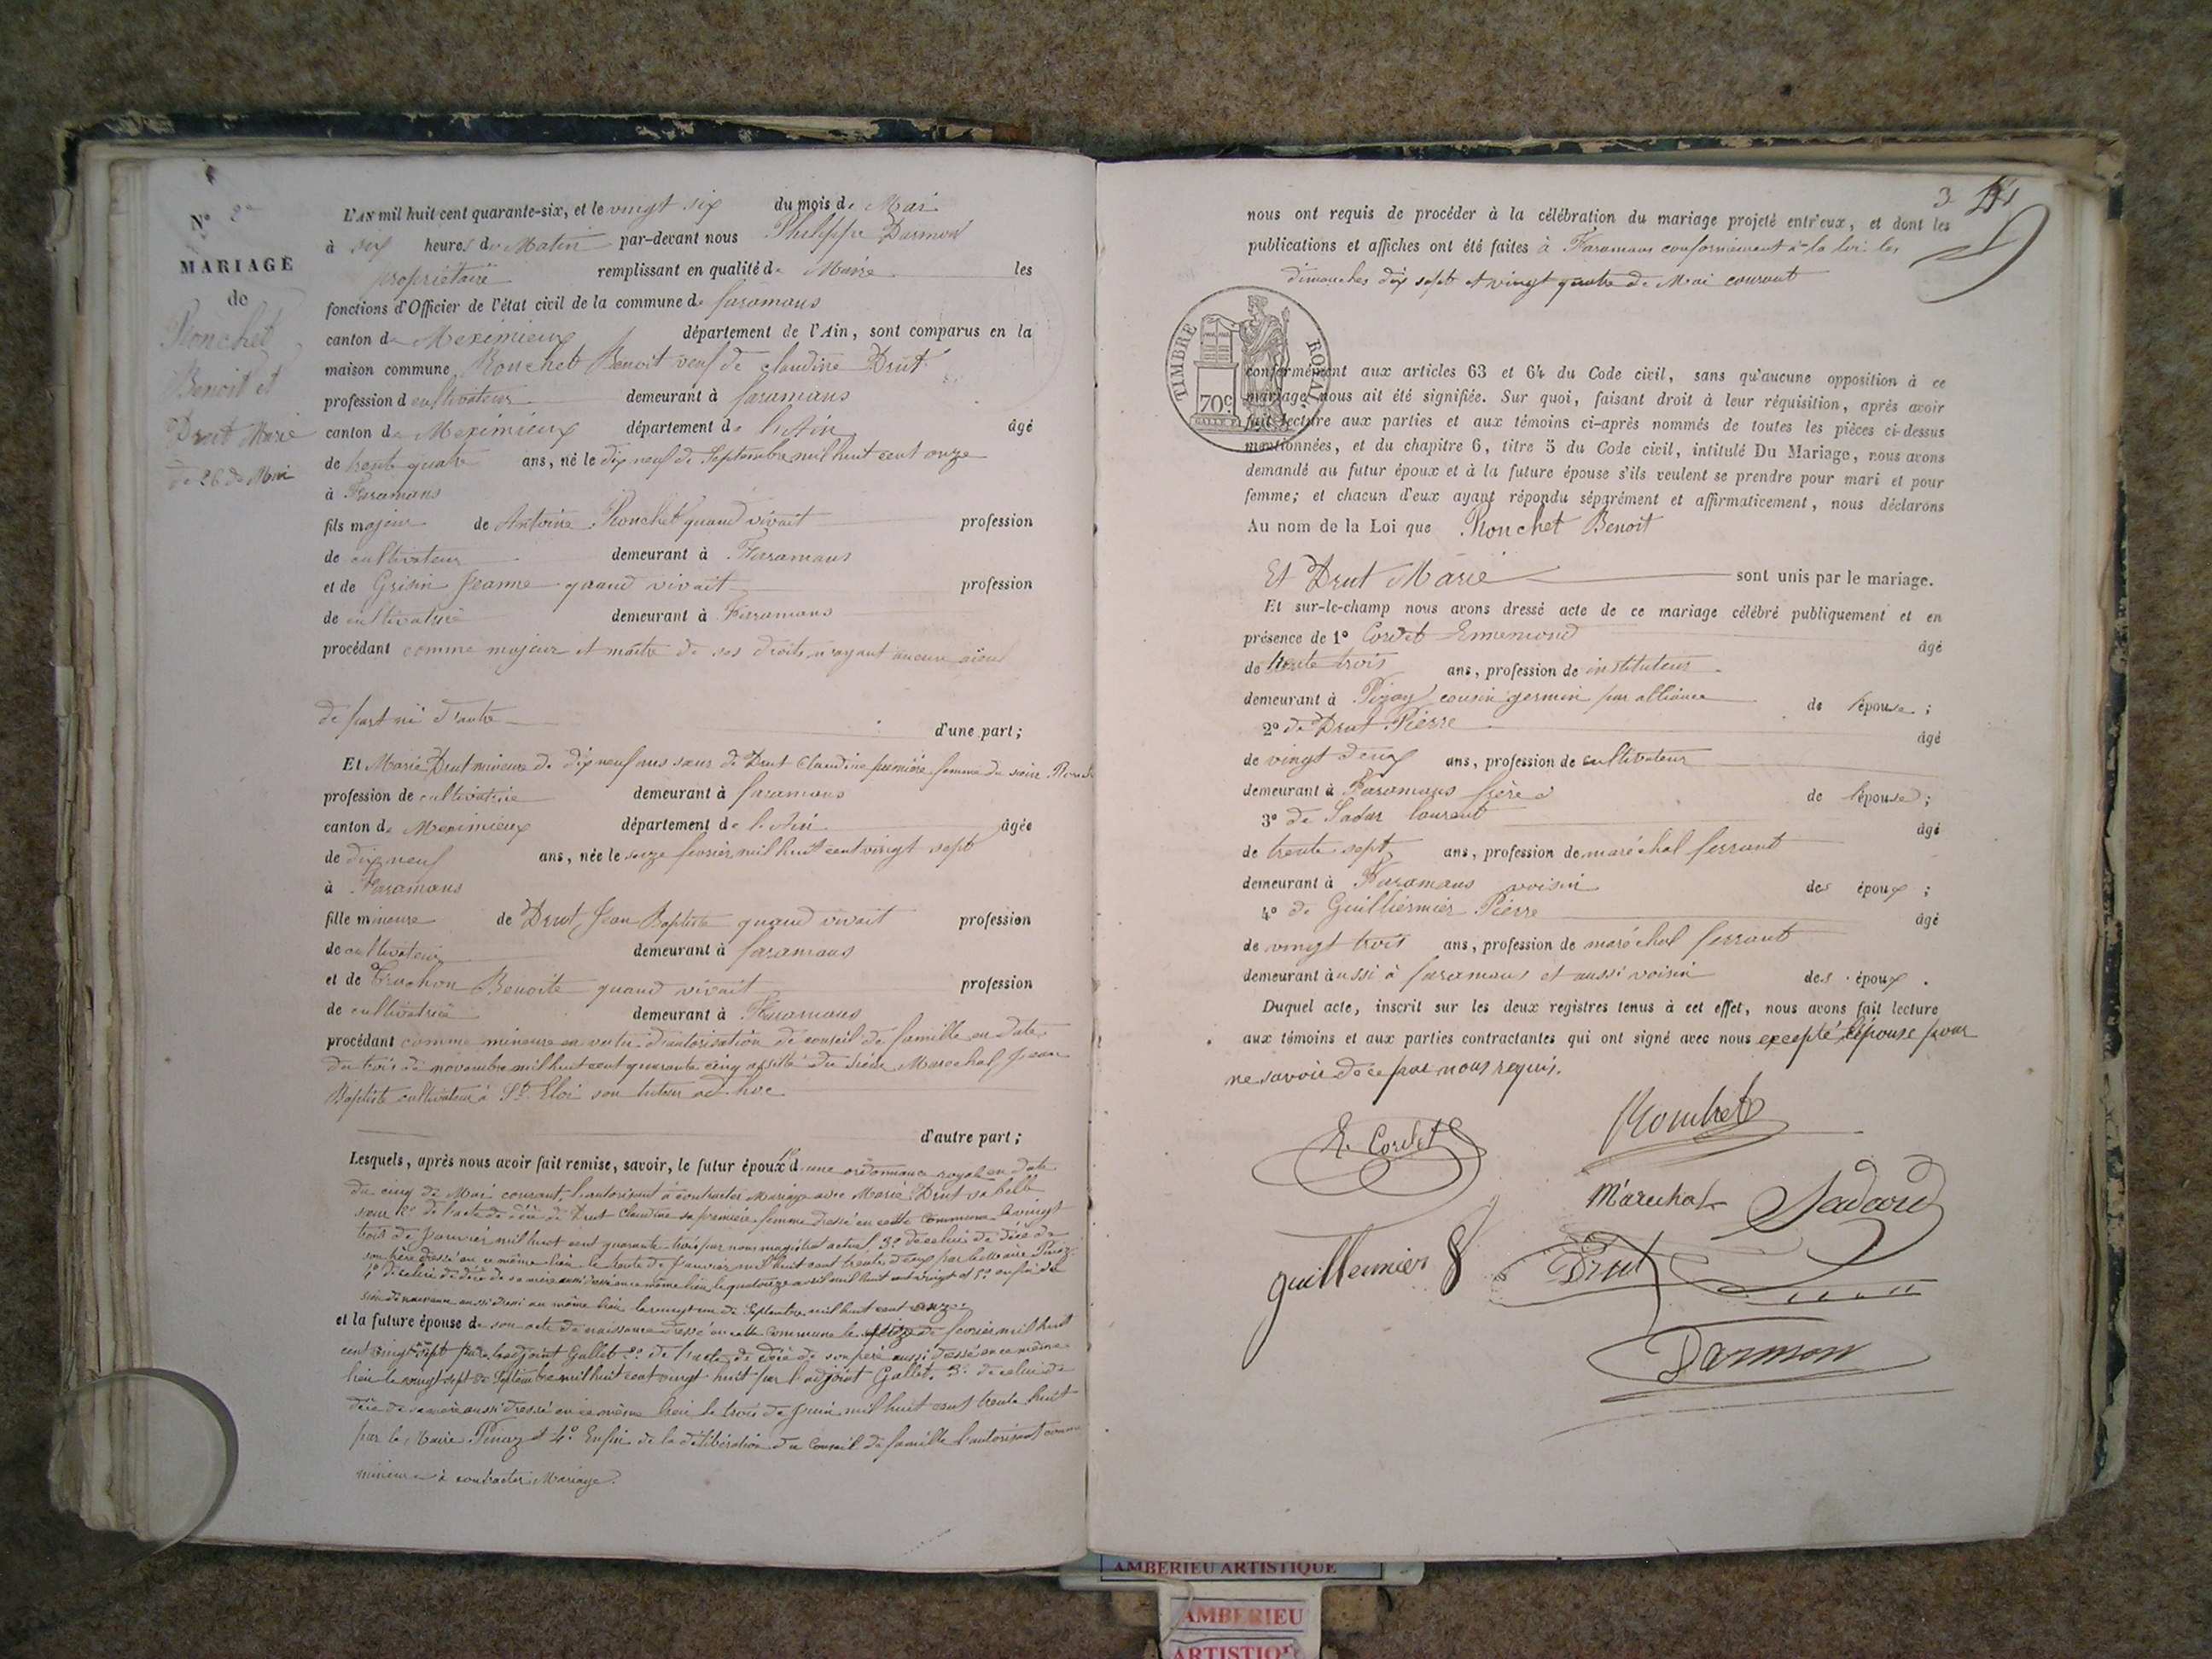 N° 2
MARIAGE
de
Ronchet
Benoit et
Drut Marie
de 26 de Mai
L'AN mil huit cent quarante-six, et le vingt six du mois de Mai
à six heures du Matin par-devant nous Philippe Darmon
propriétaire remplissant en qualité de Maire les
fonctions d'Officier de l'état civil de la commune de faramans
canton de Meximieux département de l'Ain, sont comparus en la
maison commune Ronchet Benoit veuf de claudine Drut
profession d cultivateur demeurant à faramans
canton de Meximieux département de l'Ain âgé
de trente quatre ans, né le dix neuf de Septembre mil huit cent onze
à Faramans
fils majeur de Antoine Ronchet quand vivait profession
de cultivateur demeurant à Faramans
et de Grisin Jeanne quand vivait profession
de cultivatrice demeurant à Faramans
procédant comme majeur et maître de ses droits n'ayant aucun aïeul
de part ni d'autre
d'une part;
Et Marie Drut mineure de dix neuf ans sœur de Drut Claudine première femme du sieur
profession de cultivatrice demeurant à faramans
canton de Meximieux département de l'Ain âgée
de dix neuf ans, née le seize fevrier mil huit cent vingt sept
à Faramans
fille mineure de Drut Jean Baptiste quand vivait profession
de cultivateur demeurant à faramans
et de Truchon Benoite quand vivait profession
de cultivatrice demeurant à Faramans
procédant comme mineure en vertu d'autorisation de conseil de famille en date
du trois de novembre mil huit cent quarante cinq assistée du sieur Marechal Jean
Baptiste cultivateur à St. Eloi son tuteur ad-hoc
d'autre part;
Lesquels, après nous avoir fait remise, savoir, le futur époux 1° d'une ordonnance royale en date
du cinq de Mai courant, l'autorisant à contracter Mariage avec Marie Drut sa belle
sœur 2° de l'acte de décè de Drut Claudine sa première femme dressé en cette commune le vingt
trois de Janvier mil huit cent quarante trois par nous magistrat actuel 3° de celui de décè de
son père dressé en ce même lieu le trente de Janvier mil huit cent trente deux par
4° de celui de décè de sa mère aussi dressé en ce même lieu le quatorze avril mil huit cent vingt et 5° enfin de
sien de naissance aussi dressé au même lieu le vingt un de Septembre mil huit cent onze
et la future épouse de son acte de naissance dressé en cette commune le seize de fevrier mil huit
cent vingt sept par l'adjoint Gallet 2° de l'acte de décè de son père aussi dressé en ce même
lieu le vingt sept de Septembre mil huit cent vingt huit par l'adjoint Gallet, 3° de celui de
décè de sa mère aussi dressé en ce même lieu le trois de Juin mil huit cent trente huit
par le Maire et 4° Enfin de la délibération du Conseil de famille l'autorisant comme
mineure à contracter Mariage.
3
nous ont requis de procéder à la célébration du mariage projeté entr'eux, et dont les
publications et affiches ont été faites à Faramans conformément à la loi les
dimanches dix sept et vingt quatre de Mai courant
TIMBRE ROYAL
70c
conformément aux articles 63 et 64 du Code civil, sans qu'aucune opposition à ce
mariage nous ait été signifiée. Sur quoi, faisant droit à leur réquisition, après avoir
fait lecture aux parties et aux témoins ci-après nommés de toutes les pièces ci-dessus
mentionnées, et du chapitre 6, titre 5 du Code civil, intitulé Du Mariage, nous avons
demandé au futur époux et à la future épouse s'ils veulent se prendre pour mari et pour
femme; et chacun d'eux ayant répondu séparément et affirmativement, nous déclarons
Au nom de la Loi que Ronchet Benoit
Et Drut Marie sont unis par le mariage.
Et sur-le-champ nous avons dressé acte de ce mariage célébré publiquement et en
présence de 1° Cordet Ennemond âgé
de trente trois ans, profession de instituteur
demeurant à Pizay cousin germain par alliance de l'épouse;
2° de Drut Pierre âgé
de vingt deux ans, profession de cultivateur
demeurant à Faramans frère de l'épouse;
3° de Sadar laurent âgé
de trente sept ans, profession de maréchal ferrant
demeurant à Faramans voisin des époux;
4° de Guillermier Pierre âgé
de vingt trois ans, profession de maréchal ferrant
demeurant aussi à faramans et aussi voisin des époux.
Duquel acte, inscrit sur les deux registres tenus à cet effet, nous avons fait lecture
aux témoins et aux parties contractantes qui ont signé avec nous excepté l'épouse pour
ne savoir de ce par nous requis.
E. Cordet
Ronchet
Marechal
Sadard
guillermier
Drut
Darmon
AMBERIEU ARTISTIQUE
AMBERIEU
ARTISTIQUE